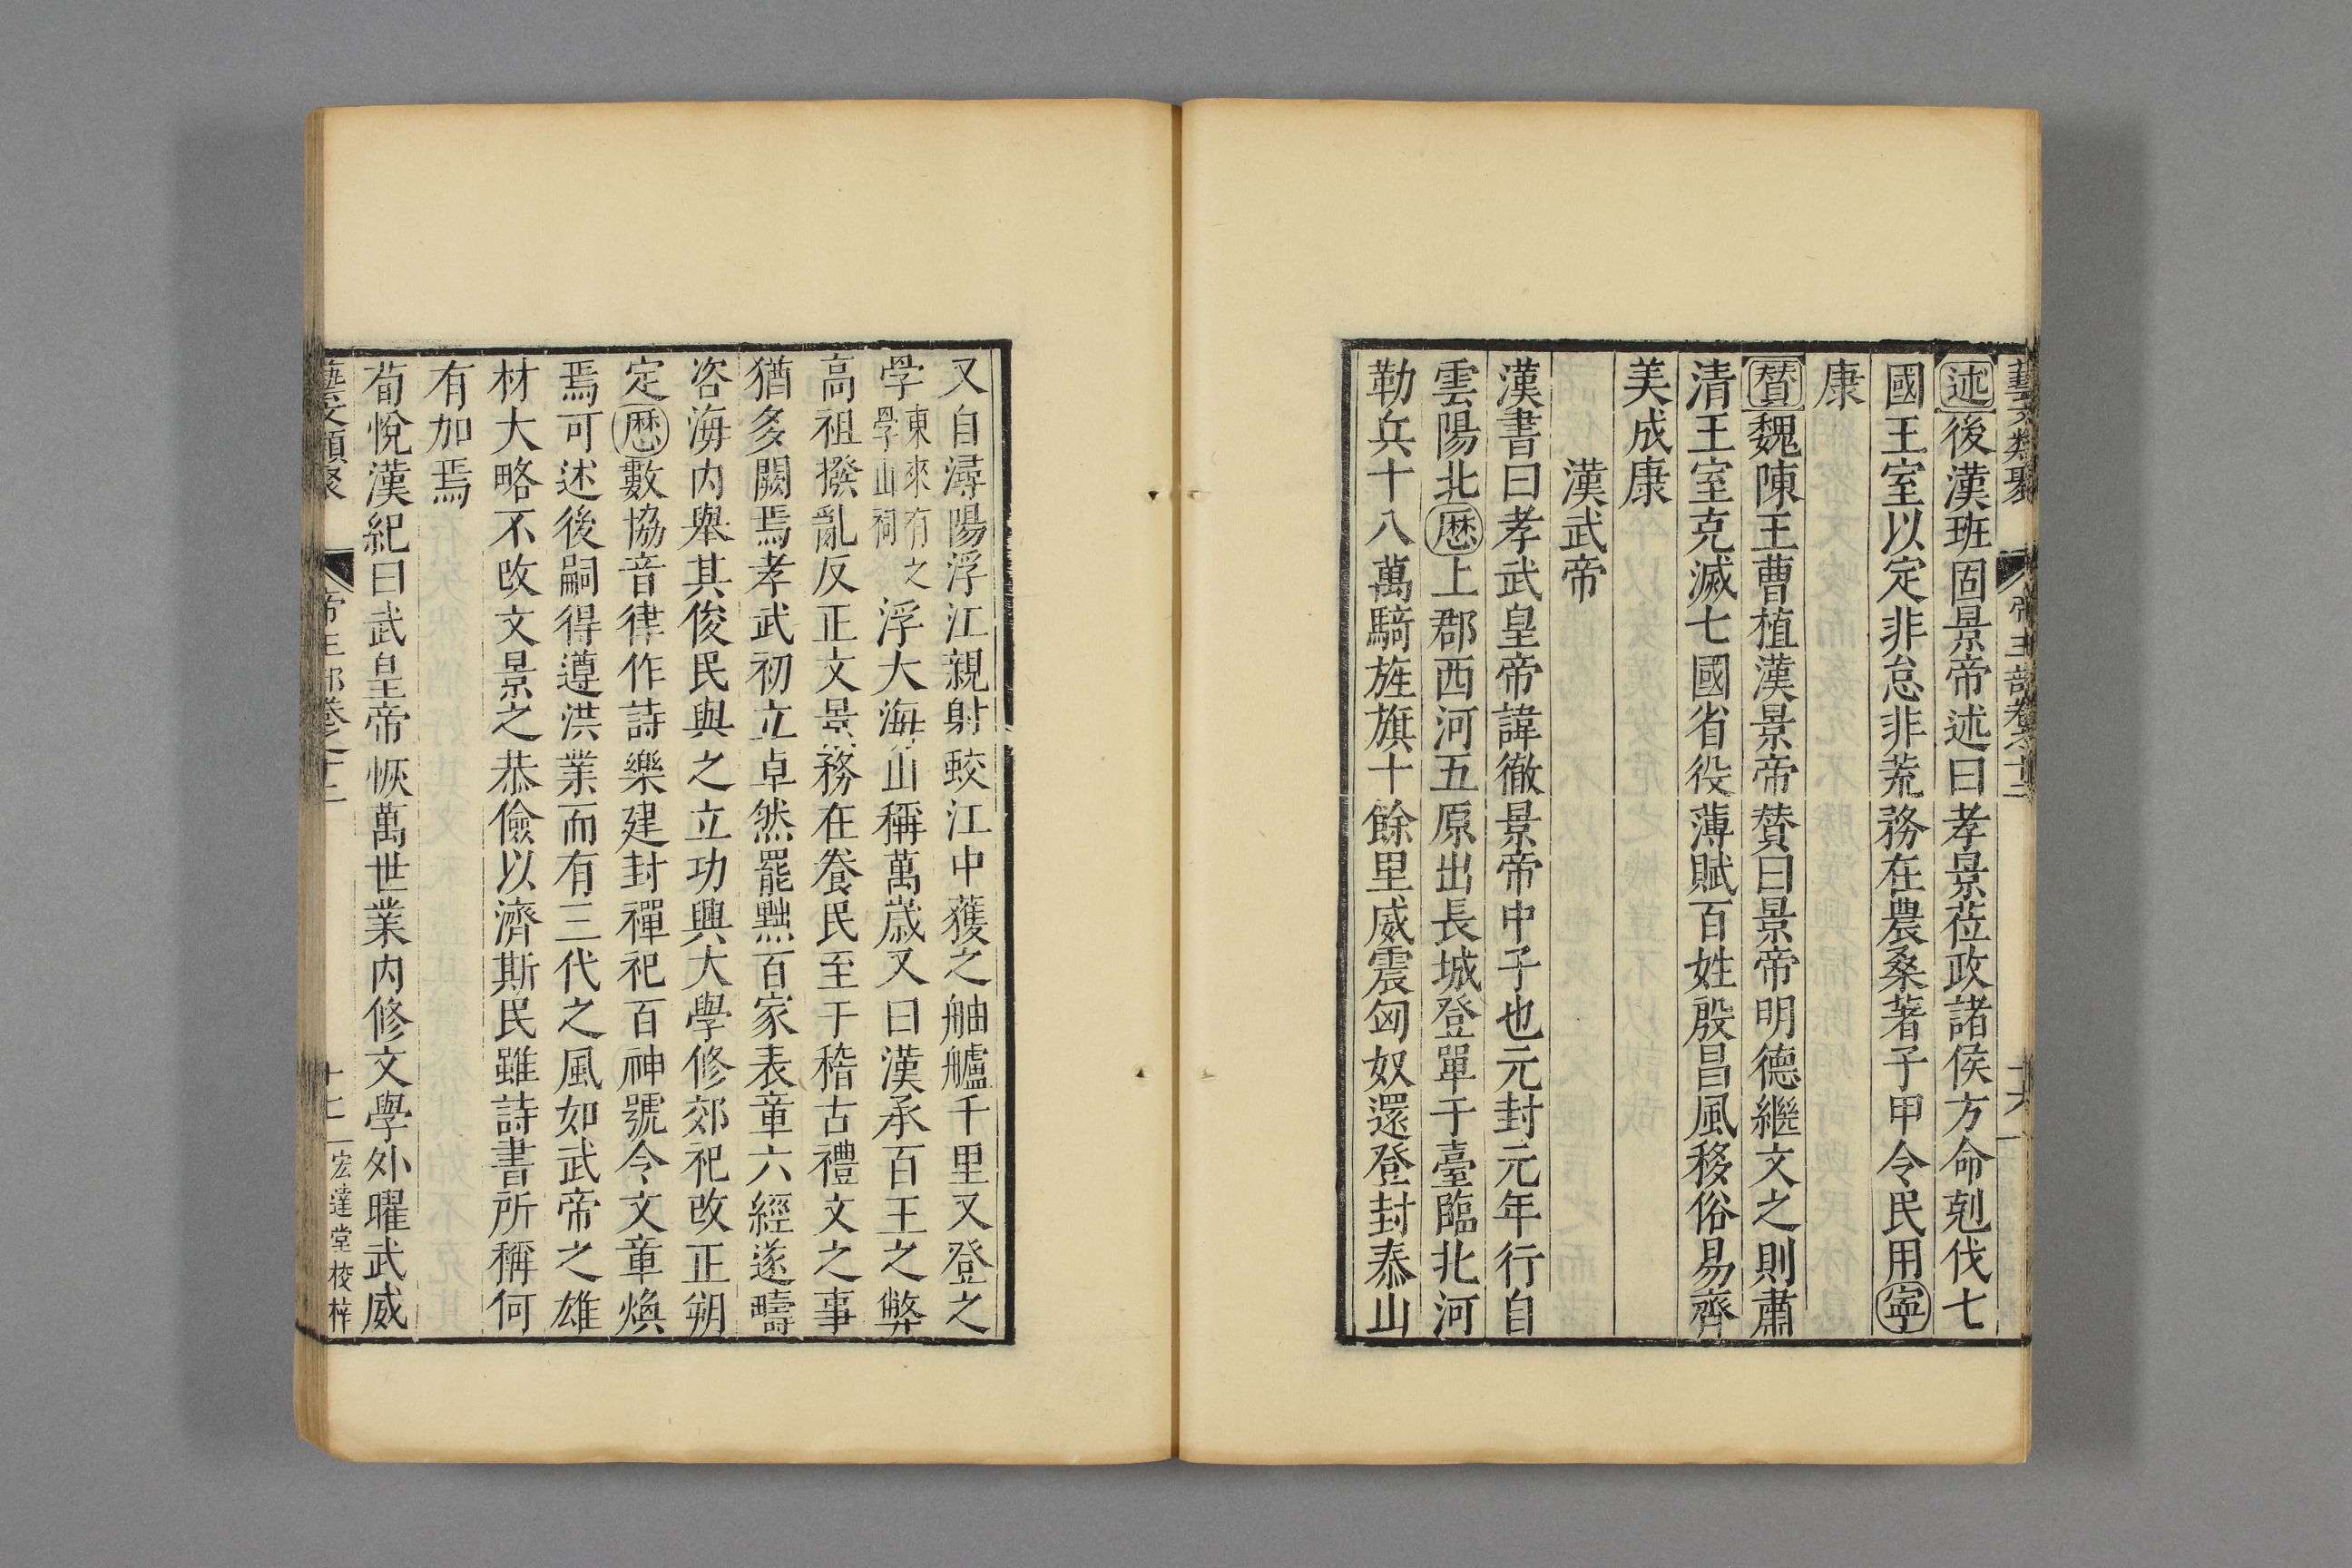 藝文類聚 帝王部卷十二 十六
述後漢班固景帝述曰孝景莅政諸侯方命剋伐七
國王室以定非怠非荒務在農桑著于甲令民用寍
康
贊魏陳王曹植漢景帝贊曰景帝明德繼文之則肅
清王室克滅七國省役薄賦百姓殷昌風移俗易齊
美成康
漢武帝
漢書曰孝武皇帝諱徹景帝中子也元封元年行自
雲陽北厯上郡西河五原出長城登單于臺臨北河
勒兵十八萬騎旌旗十餘里威震匈奴還登封泰山
又自潯陽浮江親射蛟江中獲之舳艫千里又登之
𭓕東來有之𭓕山祠浮大海山稱萬歲又曰漢承百王之弊
高祖撥亂反正文景務在養民至于稽古禮文之事
猶多闕焉孝武初立卓然罷黜百家表章六經遂疇
咨海内舉其俊民與之立功興大學修郊祀改正朔
定厯數協音律作詩樂建封禪祀百神號令文章煥
焉可述後嗣得遵洪業而有三代之風如武帝之雄
材大略不改文景之恭儉以濟斯民雖詩書所稱何
有加焉
荀悅漢紀曰武皇帝恢萬世業内修文學外曜武威
藝文類聚 帝王部卷十二 宏達堂校梓